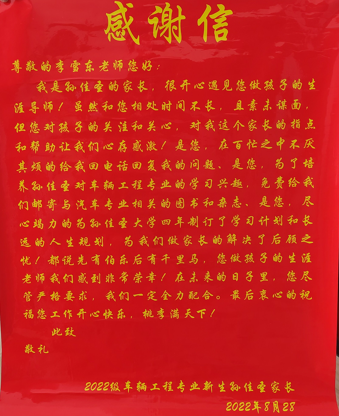 感谢信
尊敬的李雪东老师您好：
我是孙佳圣的家长，很开心遇见您做孩子的生
涯导师！虽然和您相处时间不长，且素未谋面，
但您对孩子的关注和关心，对我这个家长的指点
和帮助让我们心存感激！是您，在百忙之中不厌
其烦的给我回电话回复我的问题、是您，为了培
养孙佳圣对车辆工程专业的学习兴趣，免费给我
们邮寄与汽车专业相关的图书和杂志、是您，尽
心竭力的为孙佳圣大学四年制订了学习计划和长
远的人生规划，为我们做家长的解决了后顾之
忧！都说先有伯乐后有千里马，您做孩子的生涯
老师我们感到非常荣幸！在未来的日子里，您尽
管严格要求，我们一定全力配合。最后衷心的祝
福您工作开心快乐，桃李满天下！
此致
敬礼
2022级车辆工程专业新生孙佳圣家长
2022年8月28